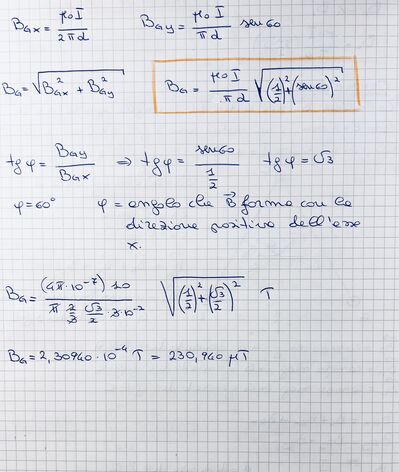 B_Gx = μ₀I / 2πd    B_Gy = μ₀I / πd sen60
B_G = √(B²_Gx + B²_Gy)    B_G = μ₀I / πd √((1/2)² + (sen60)²)
tgφ = B_Gy / B_Gx ⇒ tgφ = sen60 / (1/2)    tgφ = √3
φ = 60°    φ = angolo che B⃗ forma con la
direzione positiva dell'asse
x.
B_G = (4π·10⁻⁷) 20 / (π 2/3 √3/2 ·3·10⁻²) √((1/2)² + (√3/2)²) T
B_G = 2,30940·10⁻⁴ T = 230,940 μT